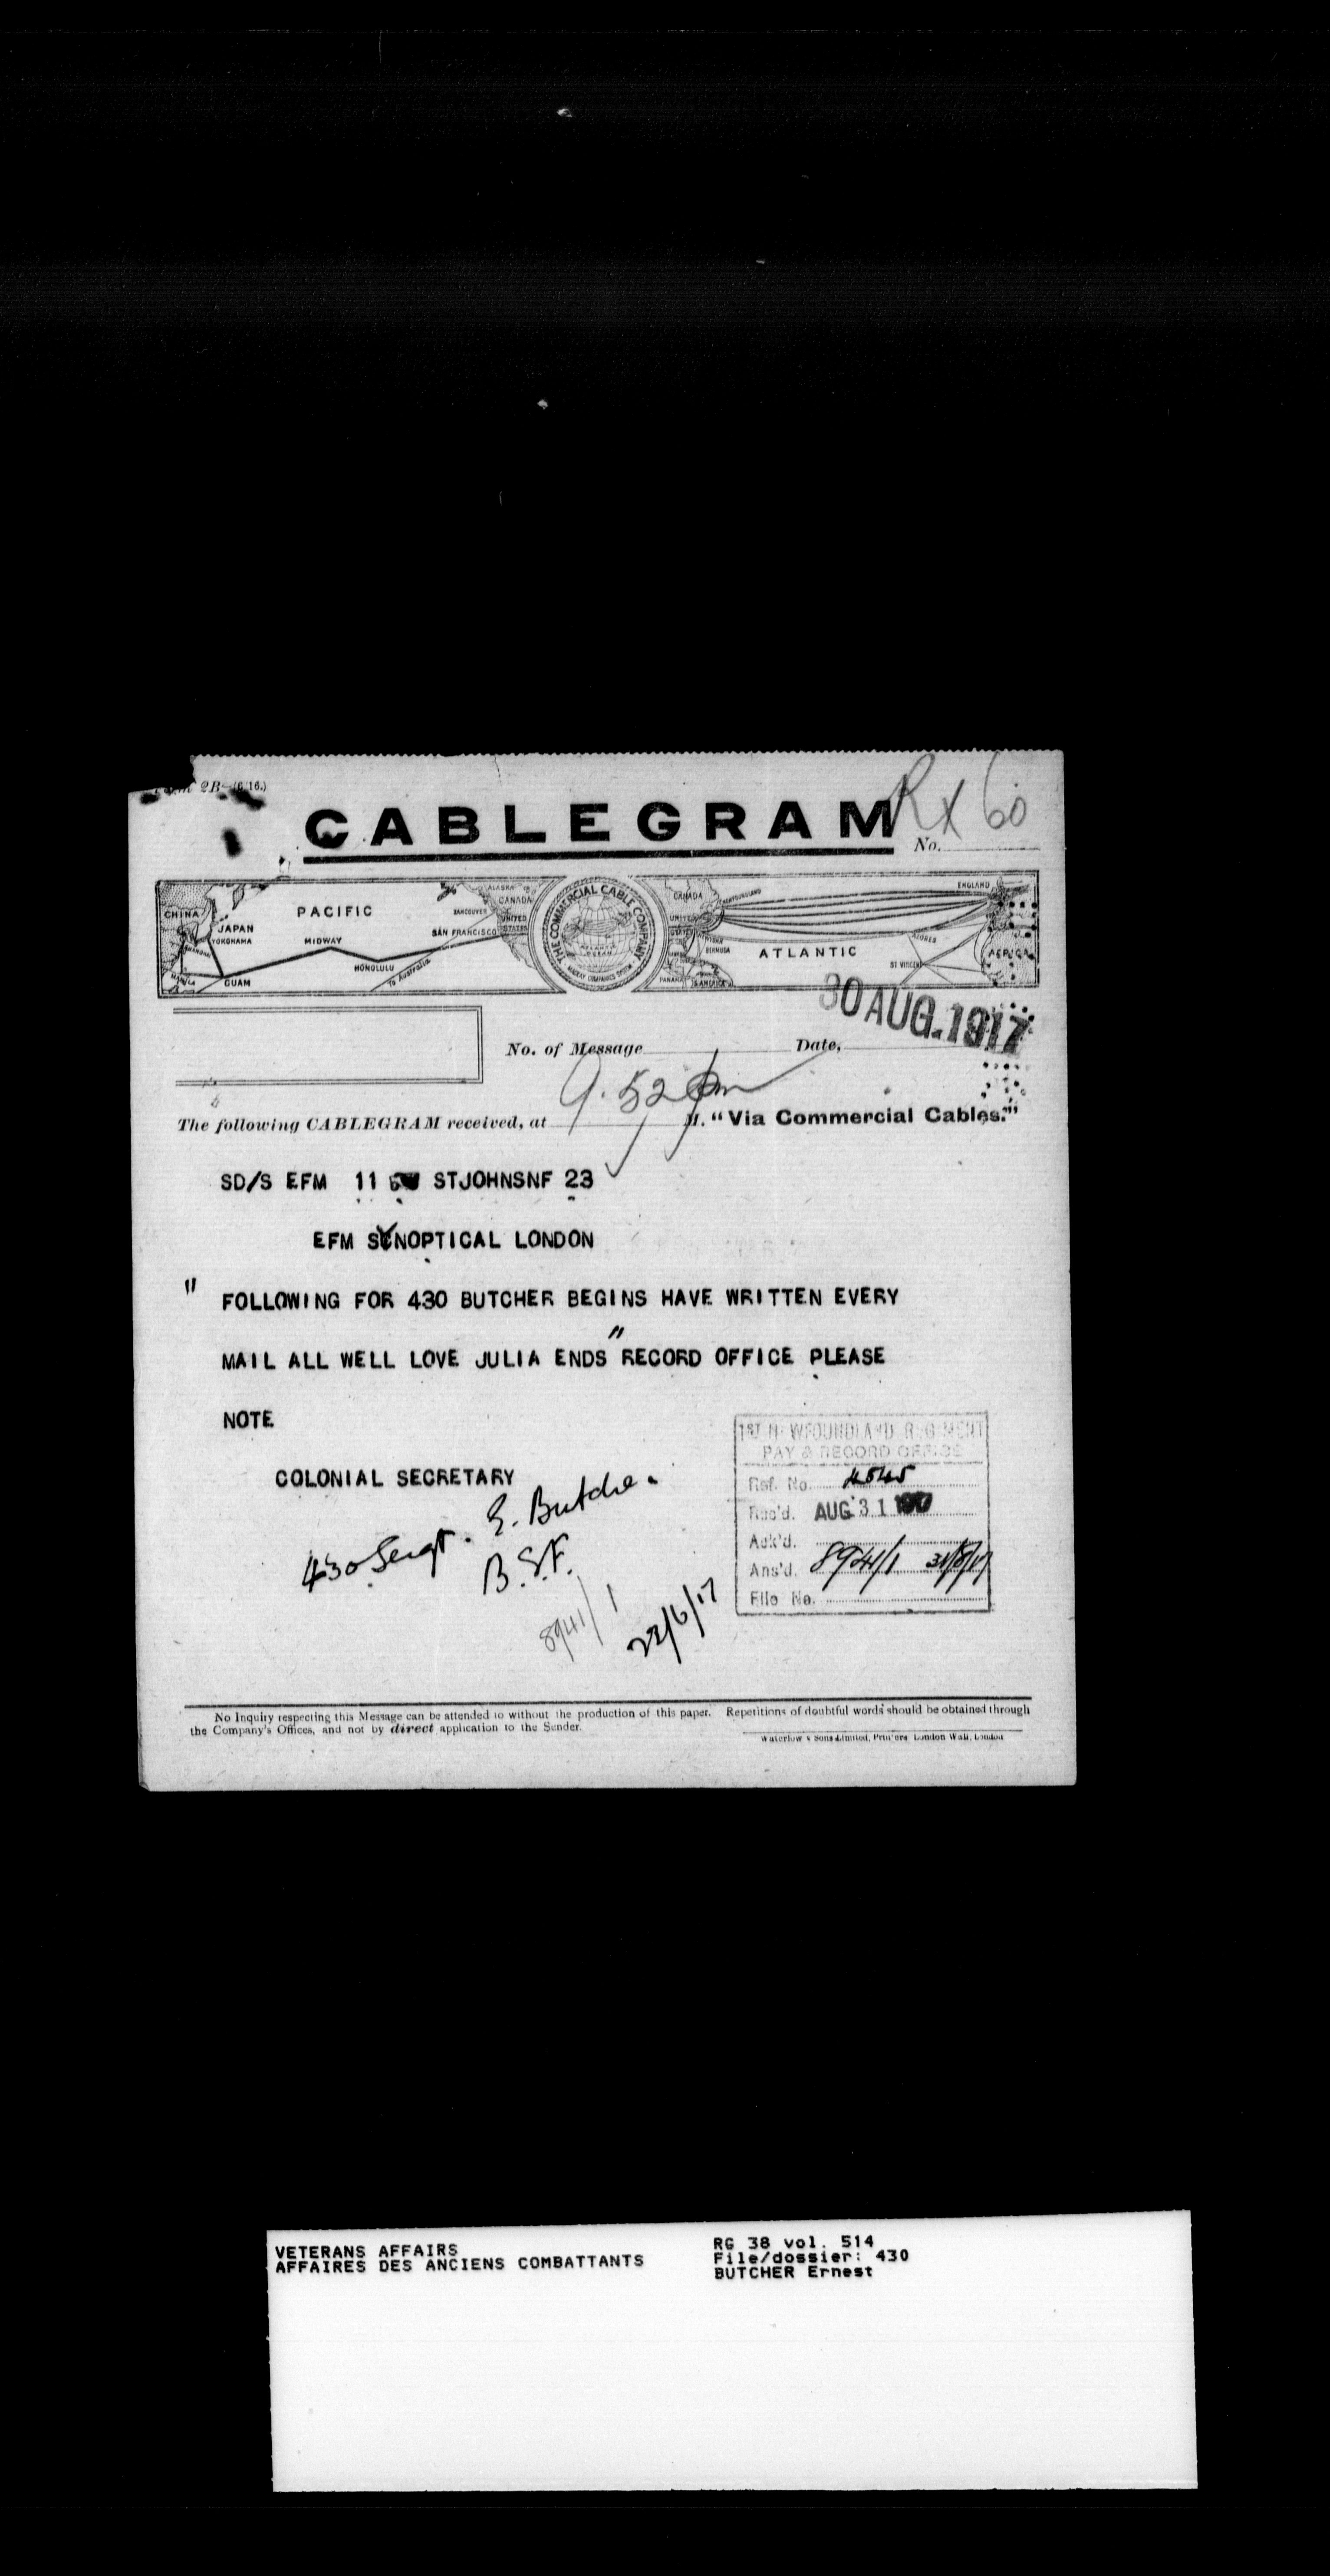 2B—(6/16.)
CABLEGRAM
Rx 60
No.
CHINA
JAPAN
YOKOHAMA
PACIFIC
MIDWAY
GUAM
HONOLULU
To Australia
ALASKA
CANADA
VANCOUVER
UNITED STATES
SAN FRANCISCO
THE COMMERCIAL CABLE COMPANY
MACKAY COMPANIES SYSTEM
CANADA
NEWFOUNDLAND
UNITED
BERMUDA
PANAMA
S.AMERICA
ATLANTIC
AZORES
ST VINCENT
ENGLAND
AFRICA
30 AUG. 1917
No. of Message
Date,
9.52 pm
The following CABLEGRAM received, at M. "Via Commercial Cables."
SD/S EFM 11 STJOHNSNF 23
EFM SYNOPTICAL LONDON
" FOLLOWING FOR 430 BUTCHER BEGINS HAVE WRITTEN EVERY
MAIL ALL WELL LOVE JULIA ENDS " RECORD OFFICE PLEASE
NOTE
COLONIAL SECRETARY
430 Sergt. E. Butcher.
B.E.F.
8941/1
22/6/17
1ST NEWFOUNDLAND REGIMENT
PAY & RECORD OFFICE
Ref. No. 4545
Rec'd. AUG 31 1917
Ack'd.
Ans'd. 8941/1 31/8/17
File No.
No Inquiry respecting this Message can be attended to without the production of this paper. Repetitions of doubtful words should be obtained through
the Company's Offices, and not by direct application to the Sender.
Waterlow & Sons Limited, Printers London Wall, London
VETERANS AFFAIRS
AFFAIRES DES ANCIENS COMBATTANTS
RG 38 vol. 514
File/dossier: 430
BUTCHER Ernest